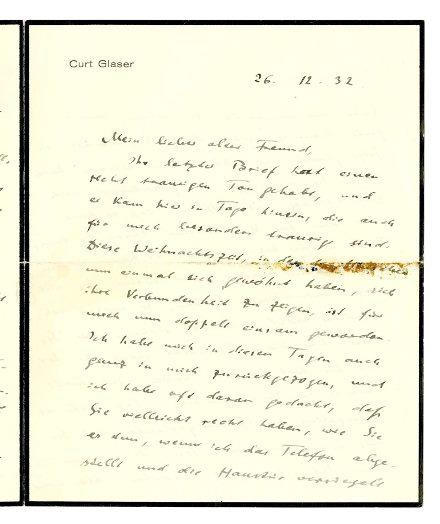 Curt Glaser
26. 12. 32
Mein lieber alter Freund,
Ihr letzter Brief hat einen
recht traurigen Ton gehabt, und
er kam hier in Tage hinein, die auch
für mich besonders traurig sind.
Diese Weihnachtszeit, in der
nun einmal sich gewöhnt haben, sich
ihre Verbundenheit zu zeigen, ist für
mich nun doppelt einsam geworden.
Ich habe mich in diesen Tagen auch
ganz in mich zurückgezogen, und
ich habe oft daran gedacht, daß
Sie vielleicht recht haben, wie Sie
es tun, wenn ich das Telefon abge-
stellt und die Haustür verriegelt